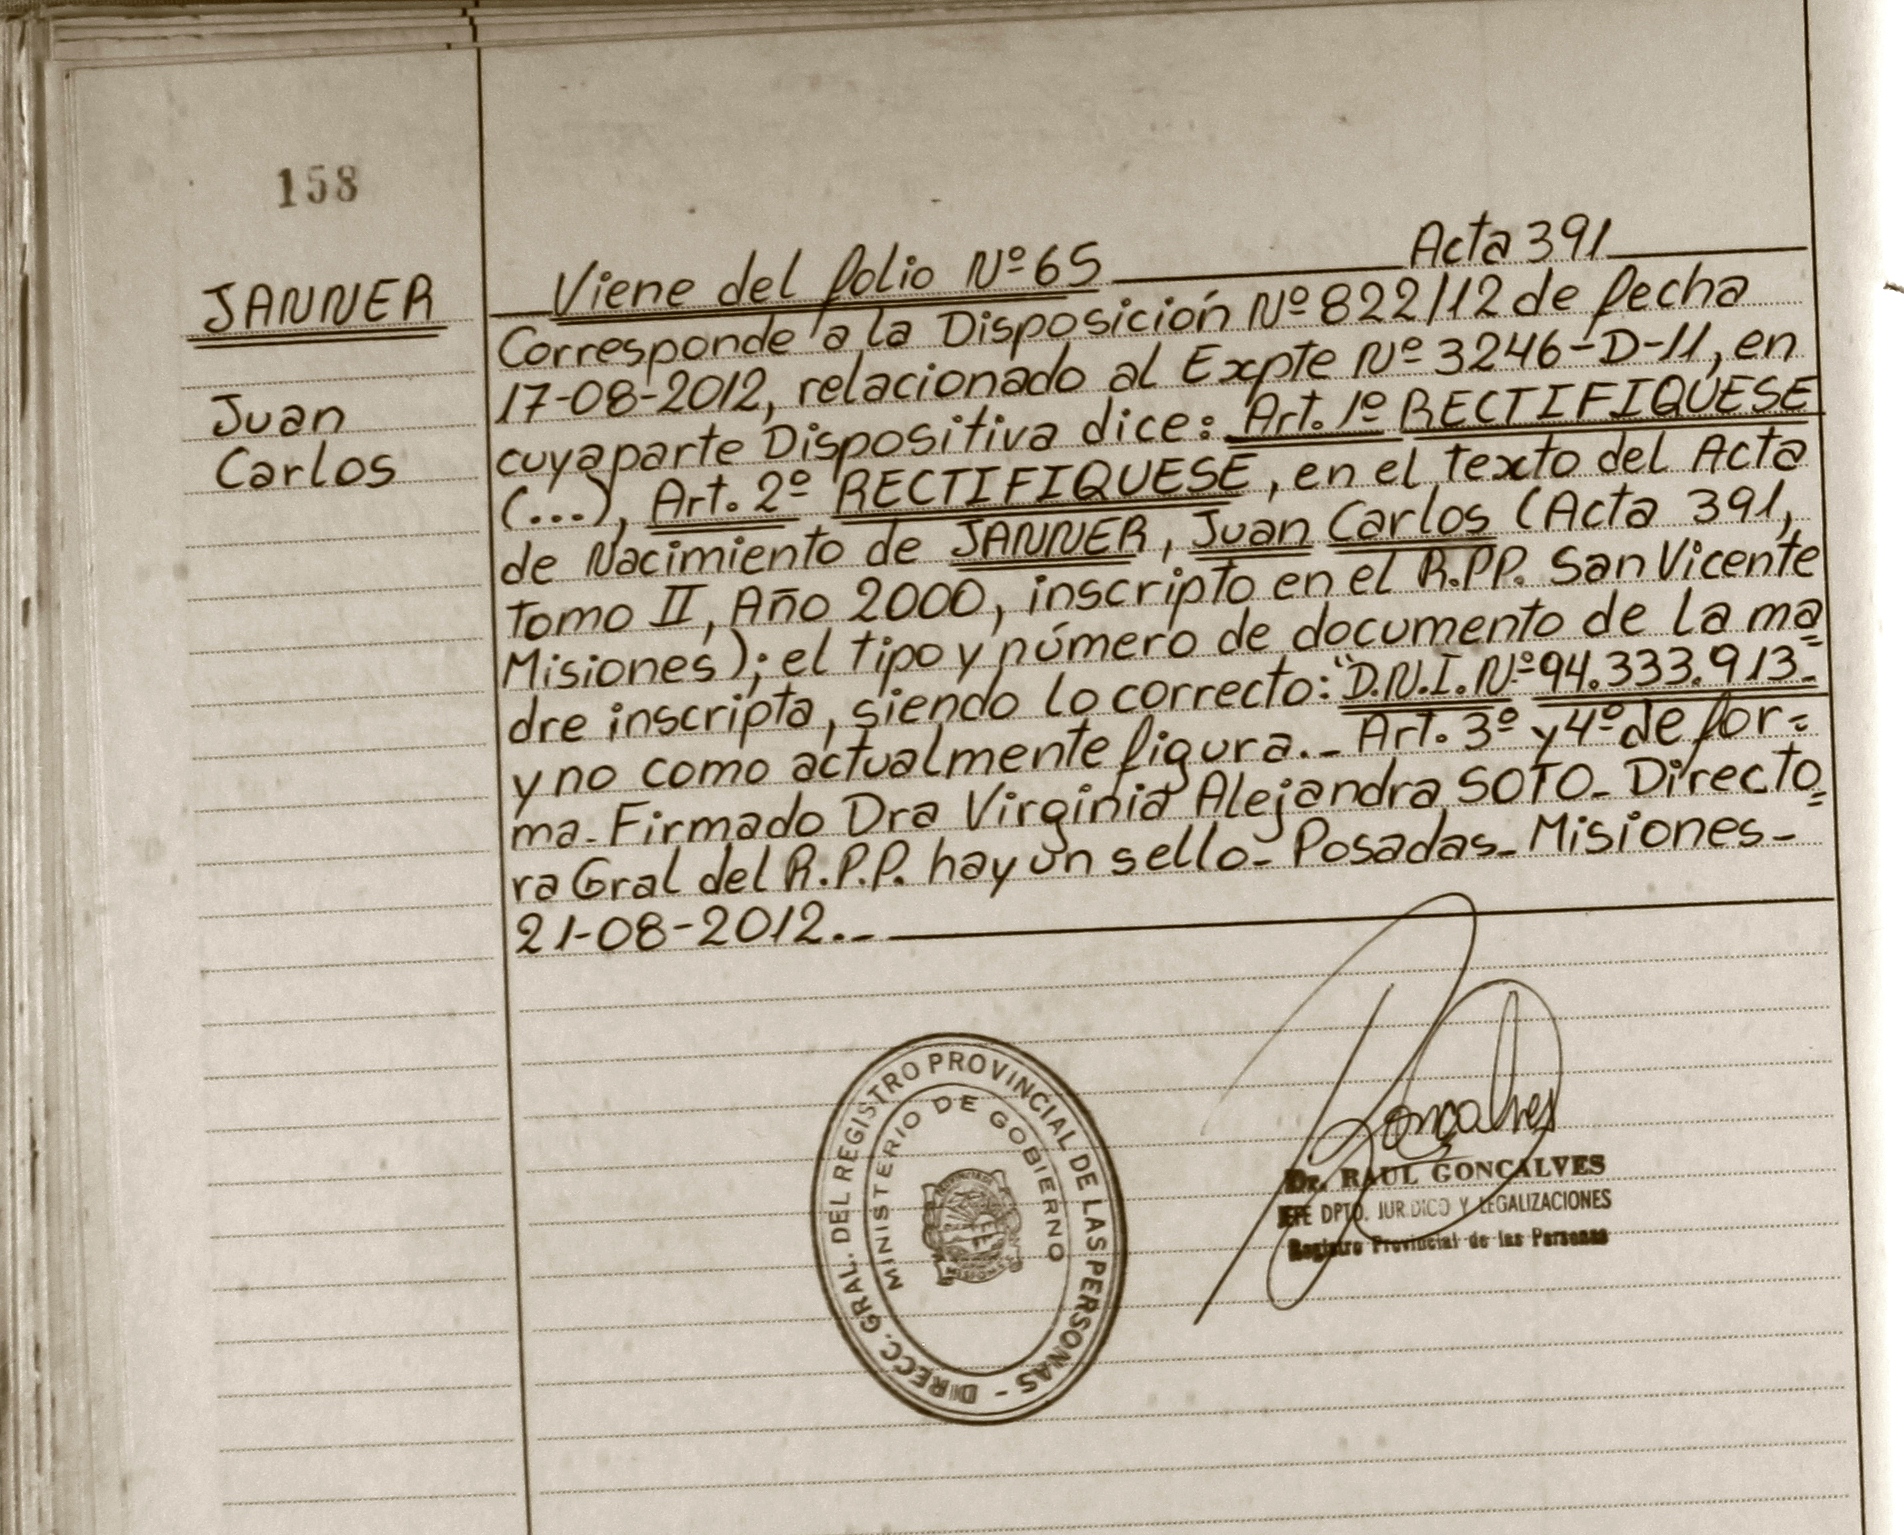 158
JANNER
Juan
Carlos
Viene del folio Nº 65 Acta 391
Corresponde a la Disposición Nº 822/12 de fecha
17-08-2012, relacionado al Expte Nº 3246-D-11, en
cuya parte Dispositiva dice: Art. 1º RECTIFIQUESE
(...), Art. 2º RECTIFIQUESE, en el texto del Acta
de Nacimiento de JANNER, Juan Carlos (Acta 391,
Tomo II, Año 2000, inscripto en el R.PP. San Vicente
Misiones); el tipo y número de documento de la ma=
dre inscripta, siendo lo correcto: "D.N.I. Nº 94.333.913"
y no como actualmente figura._ Art. 3º y 4º de for=
ma_ Firmado Dra Virginia Alejandra SOTO_ Directo=
ra Gral del R.P.P. hay un sello_ Posadas_ Misiones_
21-08-2012._
DIRECC. GRAL. DEL REGISTRO PROVINCIAL DE LAS PERSONAS -
MINISTERIO DE GOBIERNO
MISIONES
Goncalves
Dr. RAUL GONCALVES
JEFE DPTO. JURIDICO Y LEGALIZACIONES
Registro Provincial de las Personas